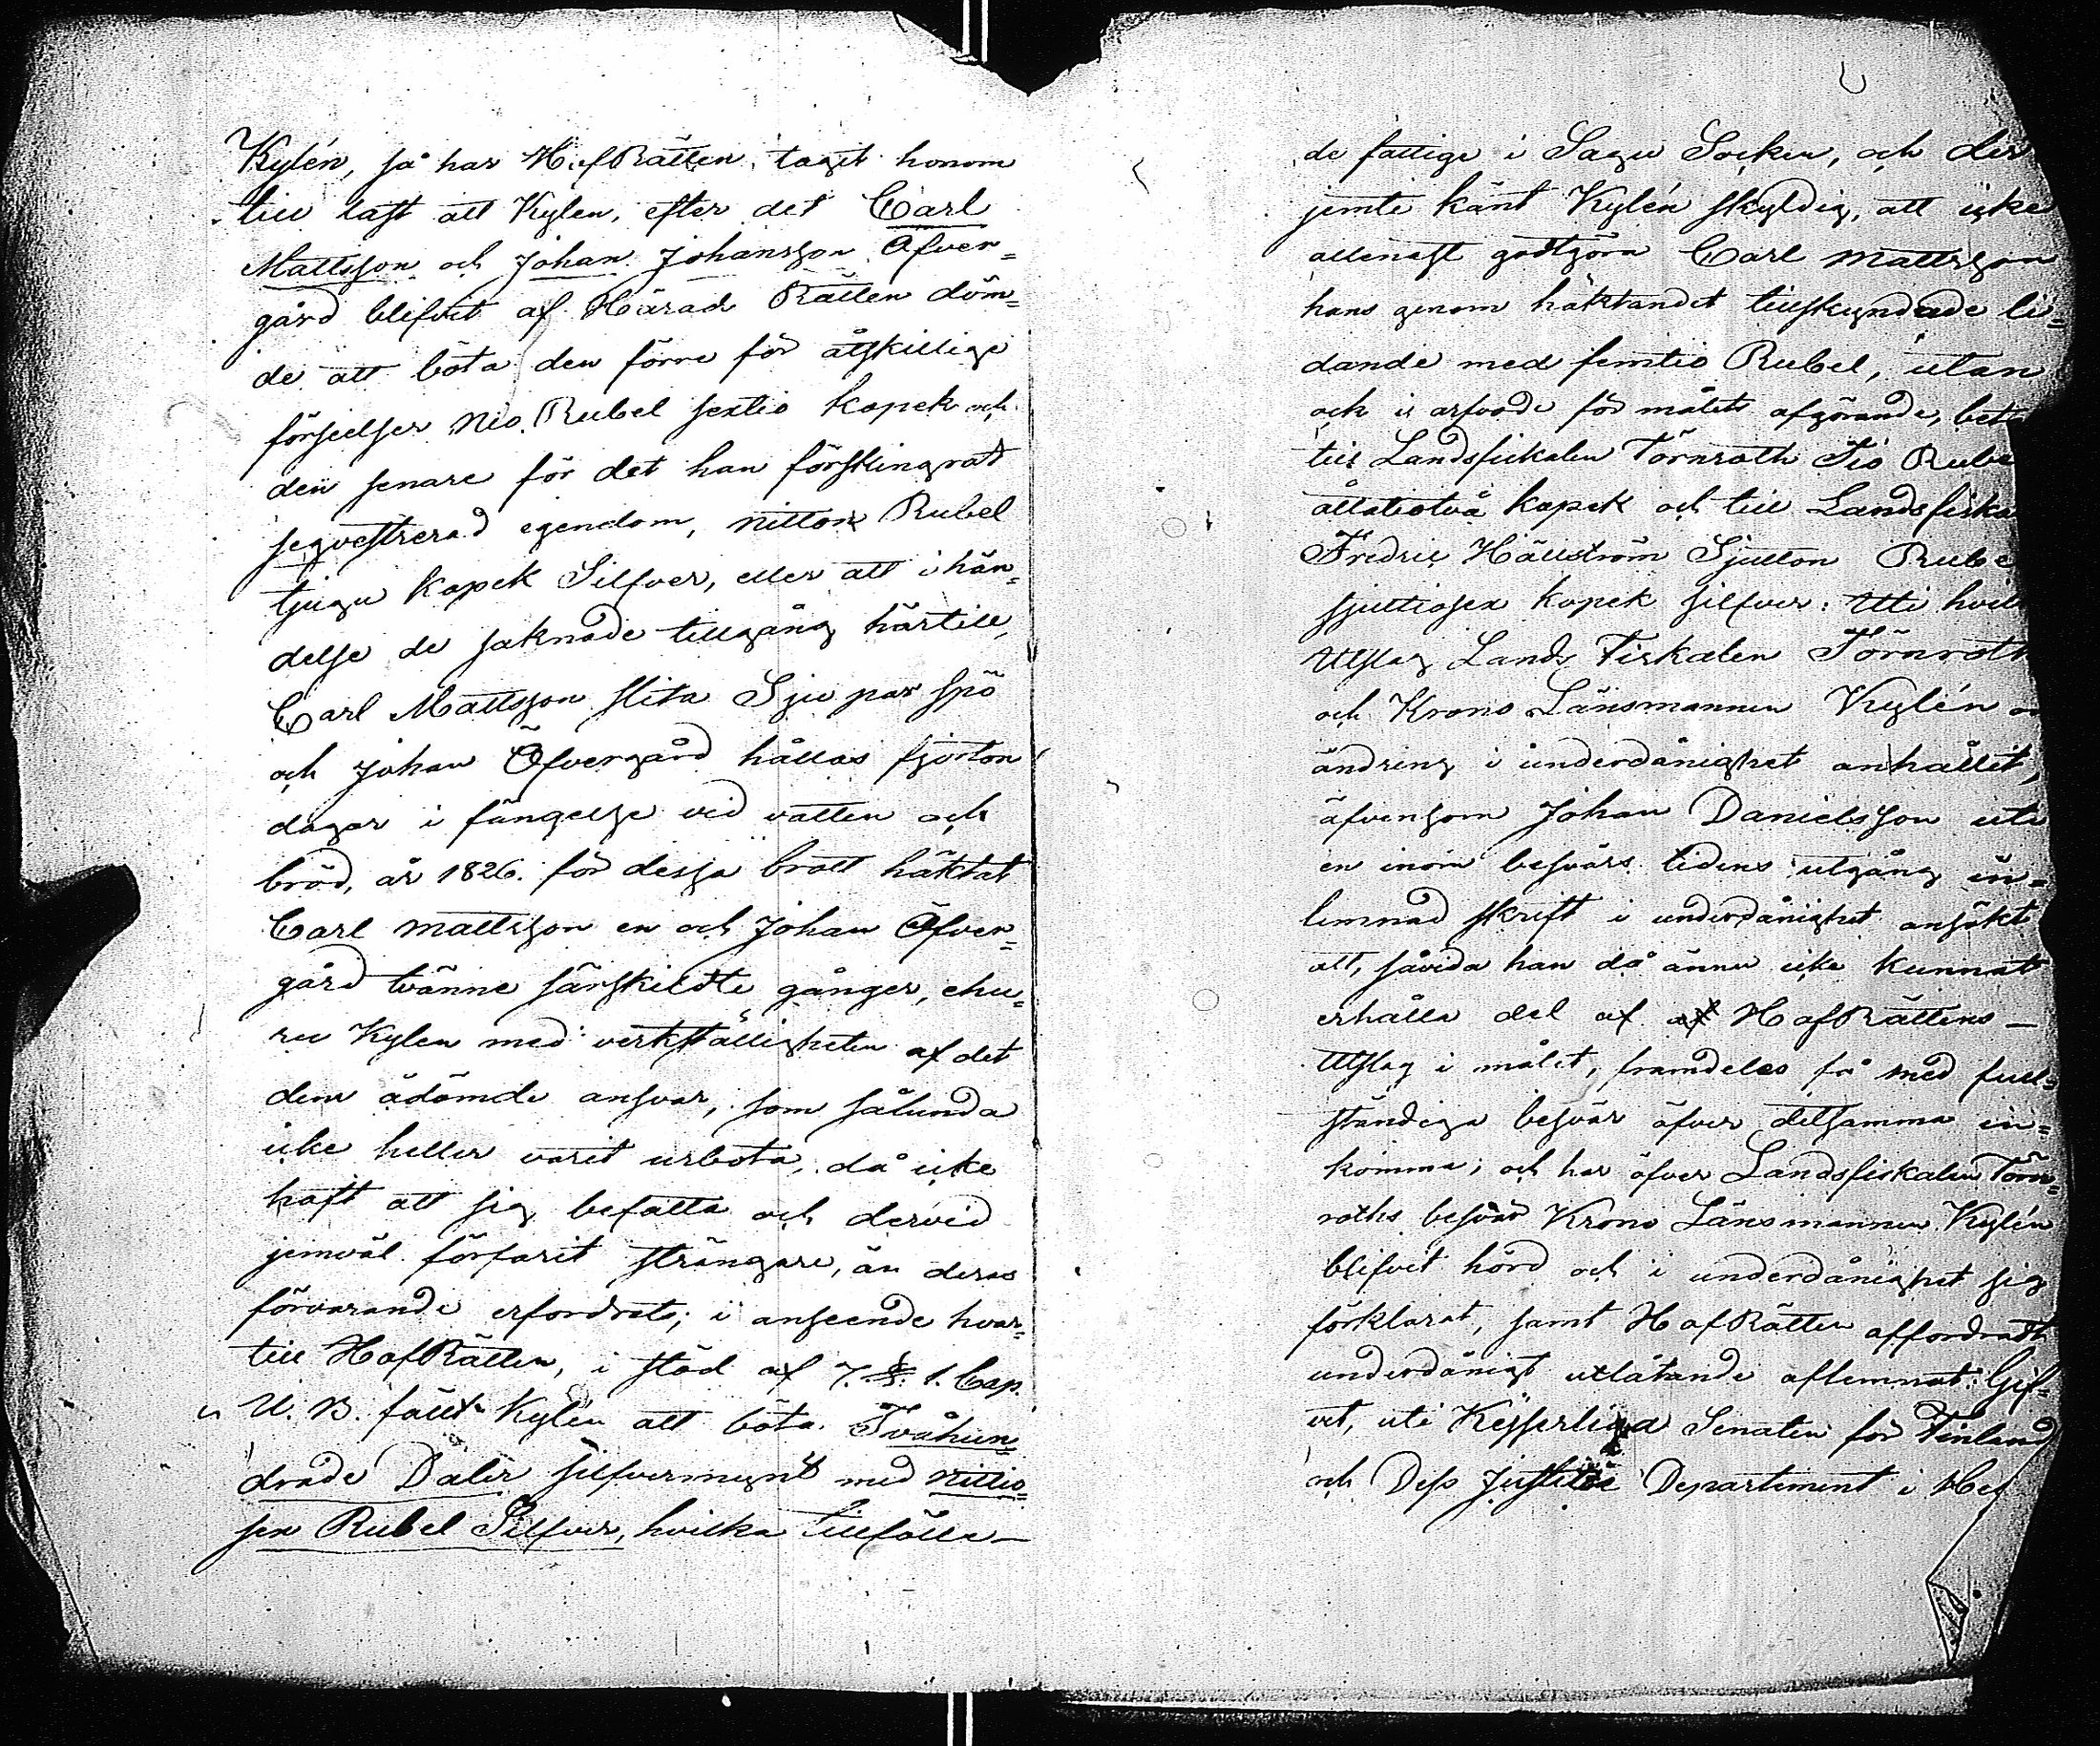 Kylén, så har HofRätten, tagit honom
till last att Kylen, efter det Carl
Mattsson och Johan Johansson Öfver=
gård blifvit af Härads Rätten döm=
de att böta den förre för åtskillige
förseelser Nio Rubel sextio kopek och
den senare för det han förskingrat
seqvestrerad egendom, nitton Rubel
tjugu kopek Silfver, eller att i hän=
delse de saknade tillgång härtill,
Carl Mattsson slita Sju par spö
och Johan Öfvergård hållas fjorton
dagar i fängelse vid vatten och
bröd, år 1826. för dessa brott häktat
Carl Mattsson en och Johan Öfver=
gård tvänne särskildte gånger, ehu=
ru Kylen med verkställigheten af det
dem ådömde ansvar, som sålunda
icke heller varit urbota, då icke
haft att sig befatta och dervid
jemväl förfarit strängare, än deras
förvarande erfordrats; i anseende hvar=
till HofRätten, i stöd af 7. §. 1. Cap.
U. B. fällt Kylén att böta Tvåhun
drade Daler silfvermynt med Nittio=
sex Rubel Silfver, hvilka tillfalla
de fattige i Sagu Socken, och der
jemte känt Kylén skyldig, att icke
allenast godtgöra Carl Mattsson
hans genom häktandet tillskyndade li=
dande med femtio Rubel, utan
och i arfvode för målets afgörande, beta
till Landsfiskalen Törnroth Tio Rube
åttatiotvå kopek och till Landsfiska
Fredric Hällström Sjutton Rube
sjuttiosex kopek silfver: Uti hvil
Utslag Lands Fiskalen Törnroth
och Krono Länsmannen Kylén
ändring i underdånighet anhållit,
äfvensom Johan Danielsson uti
en inom besvärs tidens utgång in=
lemnad skrift i underdånighet ansökt
att, såvida han då ännu icke kunnat
erhålla del af af HofRättens
Utslag i målet, framdeles få med full=
ständiga besvär öfver detsamma in=
komma; och har öfver Landsfiskalen Törn=
roths besvär Krono Länsmannen Kylén
blifvit hörd och i underdånighet sig
förklarat, samt HofRätten affordradt
underdånigt utlåtande aflemnat: Gif=
vit, uti Kejserliga Senaten för Finland
och Dess Justitie Departement i Hel